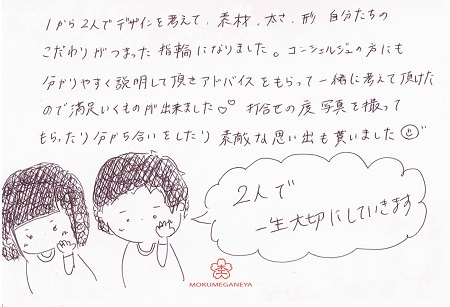 1から2人でデザインを考えて、素材、太さ、形 自分たちの
こだわりがつまった指輪になりました。コンシェルジュの方にも
分かりやすく説明して頂きアドバイスをもらって一緒に考えて頂けた
ので満足いくものが出来ました♡♡ 打合せの度 写真を撮って
もらったり分かち合いをしたり 素敵な思い出も貰いました☺
2人で
一生大切にしていきます
MOKUMEGANEYA